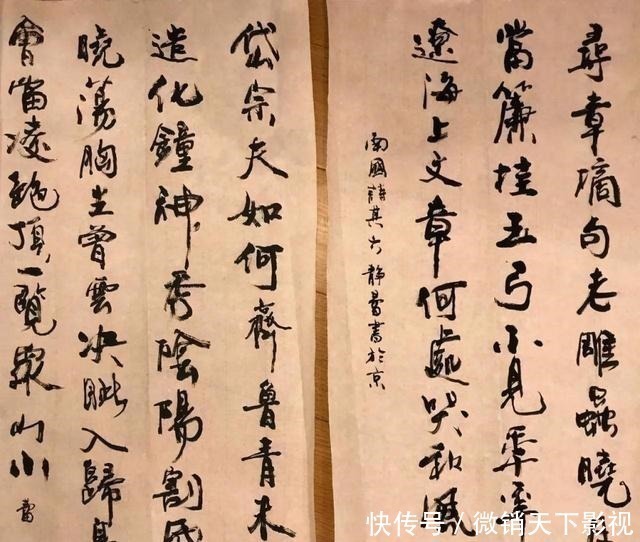 尋章摘句老雕蟲曉
當簾挂玉弓不見年年
遼海上文章何處哭秋風
南國詩其六 静書於京
岱宗夫如何齊魯青未
造化鐘神秀陰陽割昏
曉蕩胸生曾雲决眦入歸鳥
會當凌絕頂一覽眾山小
當
快传号/微销天下影视